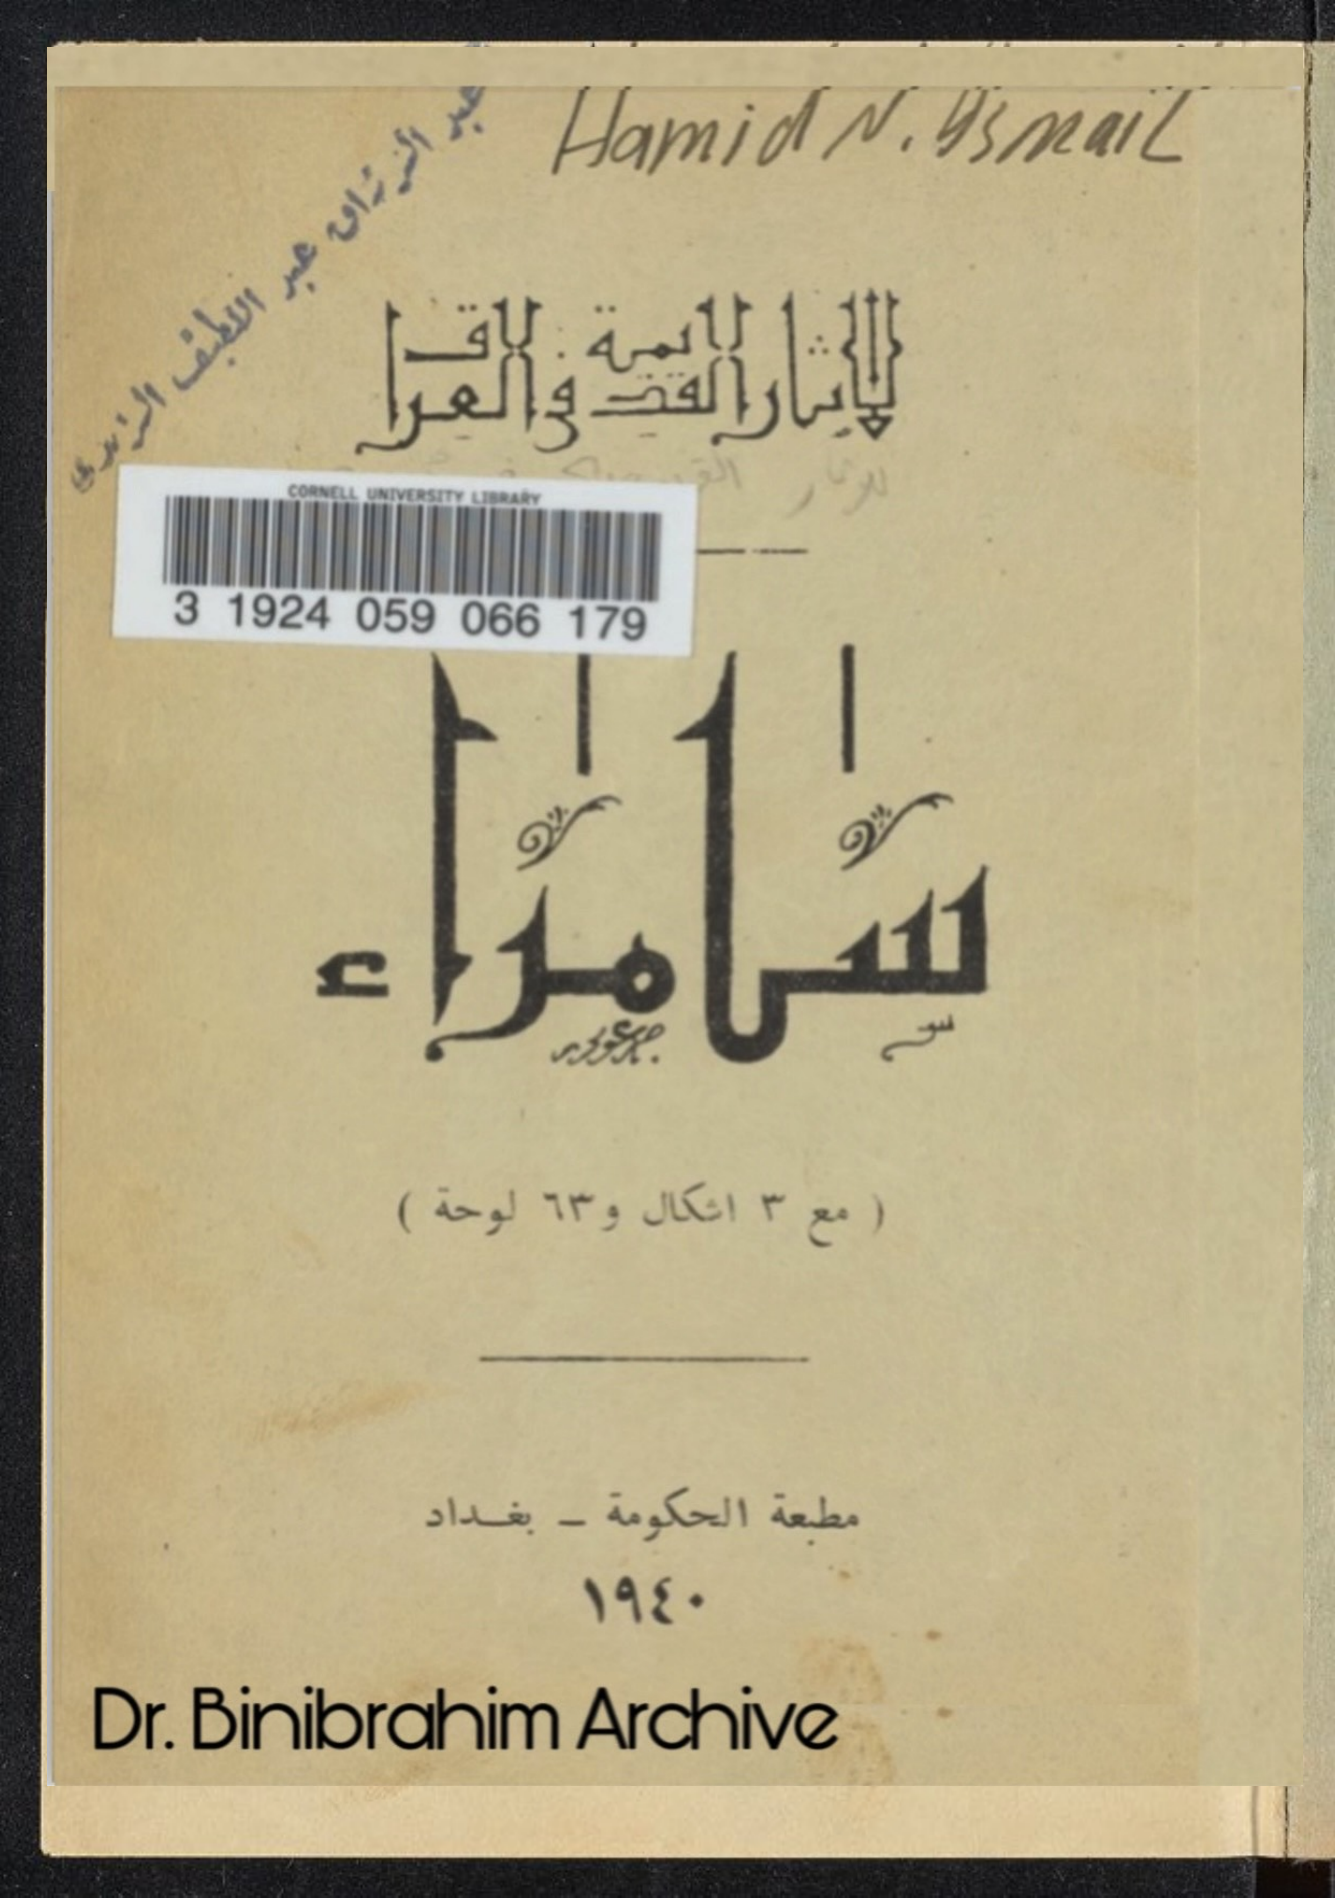 Hamid N. Ismail
عبد الرزاق عبد اللطيف
مديرية الآثار القديمة في العراق
CORNELL UNIVERSITY LIBRARY
3 1924 059 066 179
سامراء
( مع ٣ اشكال و٦٣ لوحة )
مطبعة الحكومة – بغداد
١٩٤٠
Dr. Binibrahim Archive